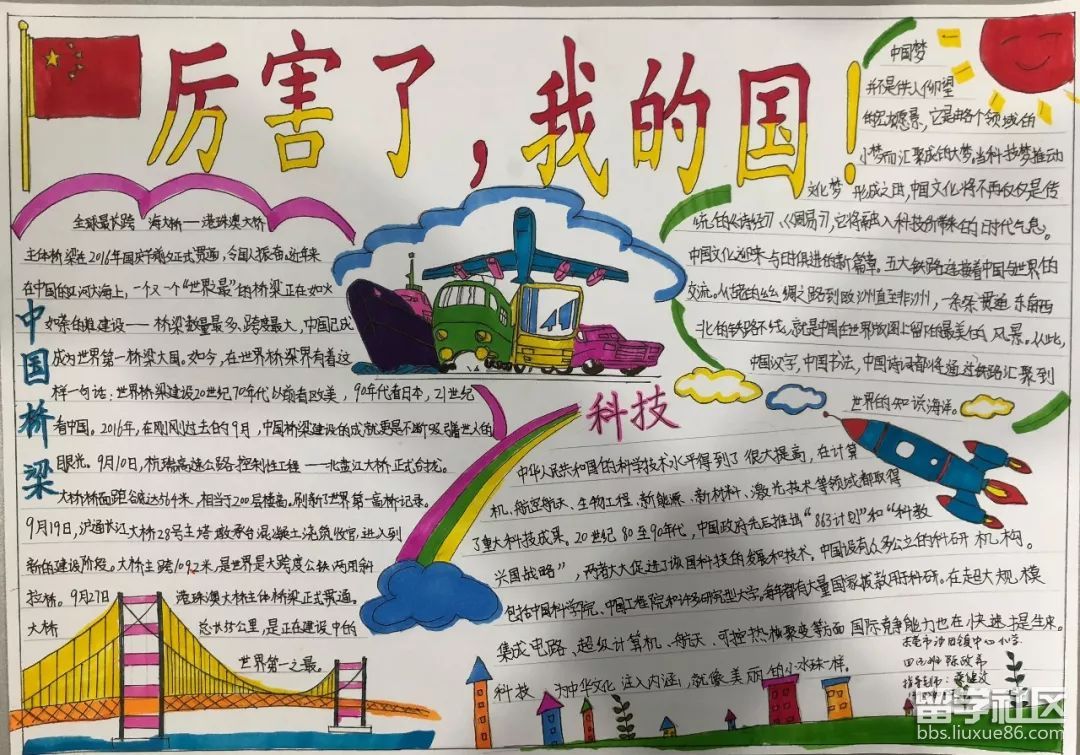 厉害了，我的国！
全球最长跨海大桥——港珠澳大桥
主体桥梁在2016年国庆节前夕正式贯通，令国人振奋。近年来
在中国的江河大海上，一个又一个“世界最”的桥梁正在如火
如荼的推建设——桥梁数量最多、跨度最大，中国已成
成为世界第一桥梁大国。如今，在世界桥梁界有着这
样一句话：世界桥梁建设20世纪70年代以前看欧美，90年代看日本，21世纪
看中国。2016年，在刚刚过去的9月，中国桥梁建设的成就更是不断吸引着世人的
眼光。9月10日，杭瑞高速公路控制性工程——北盘江大桥正式合拢。
大桥桥面距谷底达564米，相当于200层楼高。刷新了世界第一高桥记录。
9月19日，沪通长江大桥28号主塔墩承台混凝土浇筑收官，进入到
新的建设阶段。大桥主跨1092米，是世界是大跨度公铁两用斜
拉桥。9月27日 港珠澳大桥主体桥梁正式贯通。
大桥 总长55公里，是正在建设中的
世界第一之最。
中国桥梁
中国梦
并不是供人仰望
的宏愿景，它是由各个领域的
小梦而汇聚成的大梦。当科技梦推动
文化梦形成之时，中国文化将不再仅仅是传
统的《诗经》《周易》，它将融入科技所带来的时代气息。
中国文化迎来与时俱进的新篇章。五大铁路连接着中国与世界的
交流。从古路的丝绸之路到欧洲直至非洲，一条条贯通东南西
北的铁路干线，就是中国在世界版图上留下的最美的风景。从此，
中国汉字，中国书法，中国诗词都将通过铁路汇聚到
世界的知识海洋。
科技
中华人民共和国的科学技术水平得到了很大提高，在计算
机、航空航天、生物工程、新能源、新材料、激光技术等领域都取得
了重大科技成果。20世纪80至90年代，中国政府先后推出“863计划”和“科教
兴国战略”，两者大大促进了该国科技的发展和技术。中国设有众多公立的科研机构。
包括中国科学院、中国工程院和许多研究型大学。每年都有大量国家拨款用于科研。在超大规模
集成电路、超级计算机、航天、可控热核聚变等方面国际竞争能力也在快速提生来。
科技为中华文化注入内涵，就像美丽的小水珠一样。
东莞市沙田镇中心小学
指导老师：
留学社区
bbs.liuxue86.com